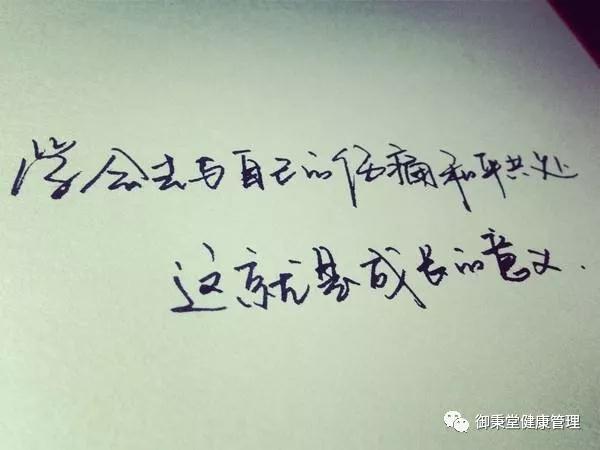 学会去与自己的伤痛和平共处
这就是成长的意义.
御秉堂健康管理